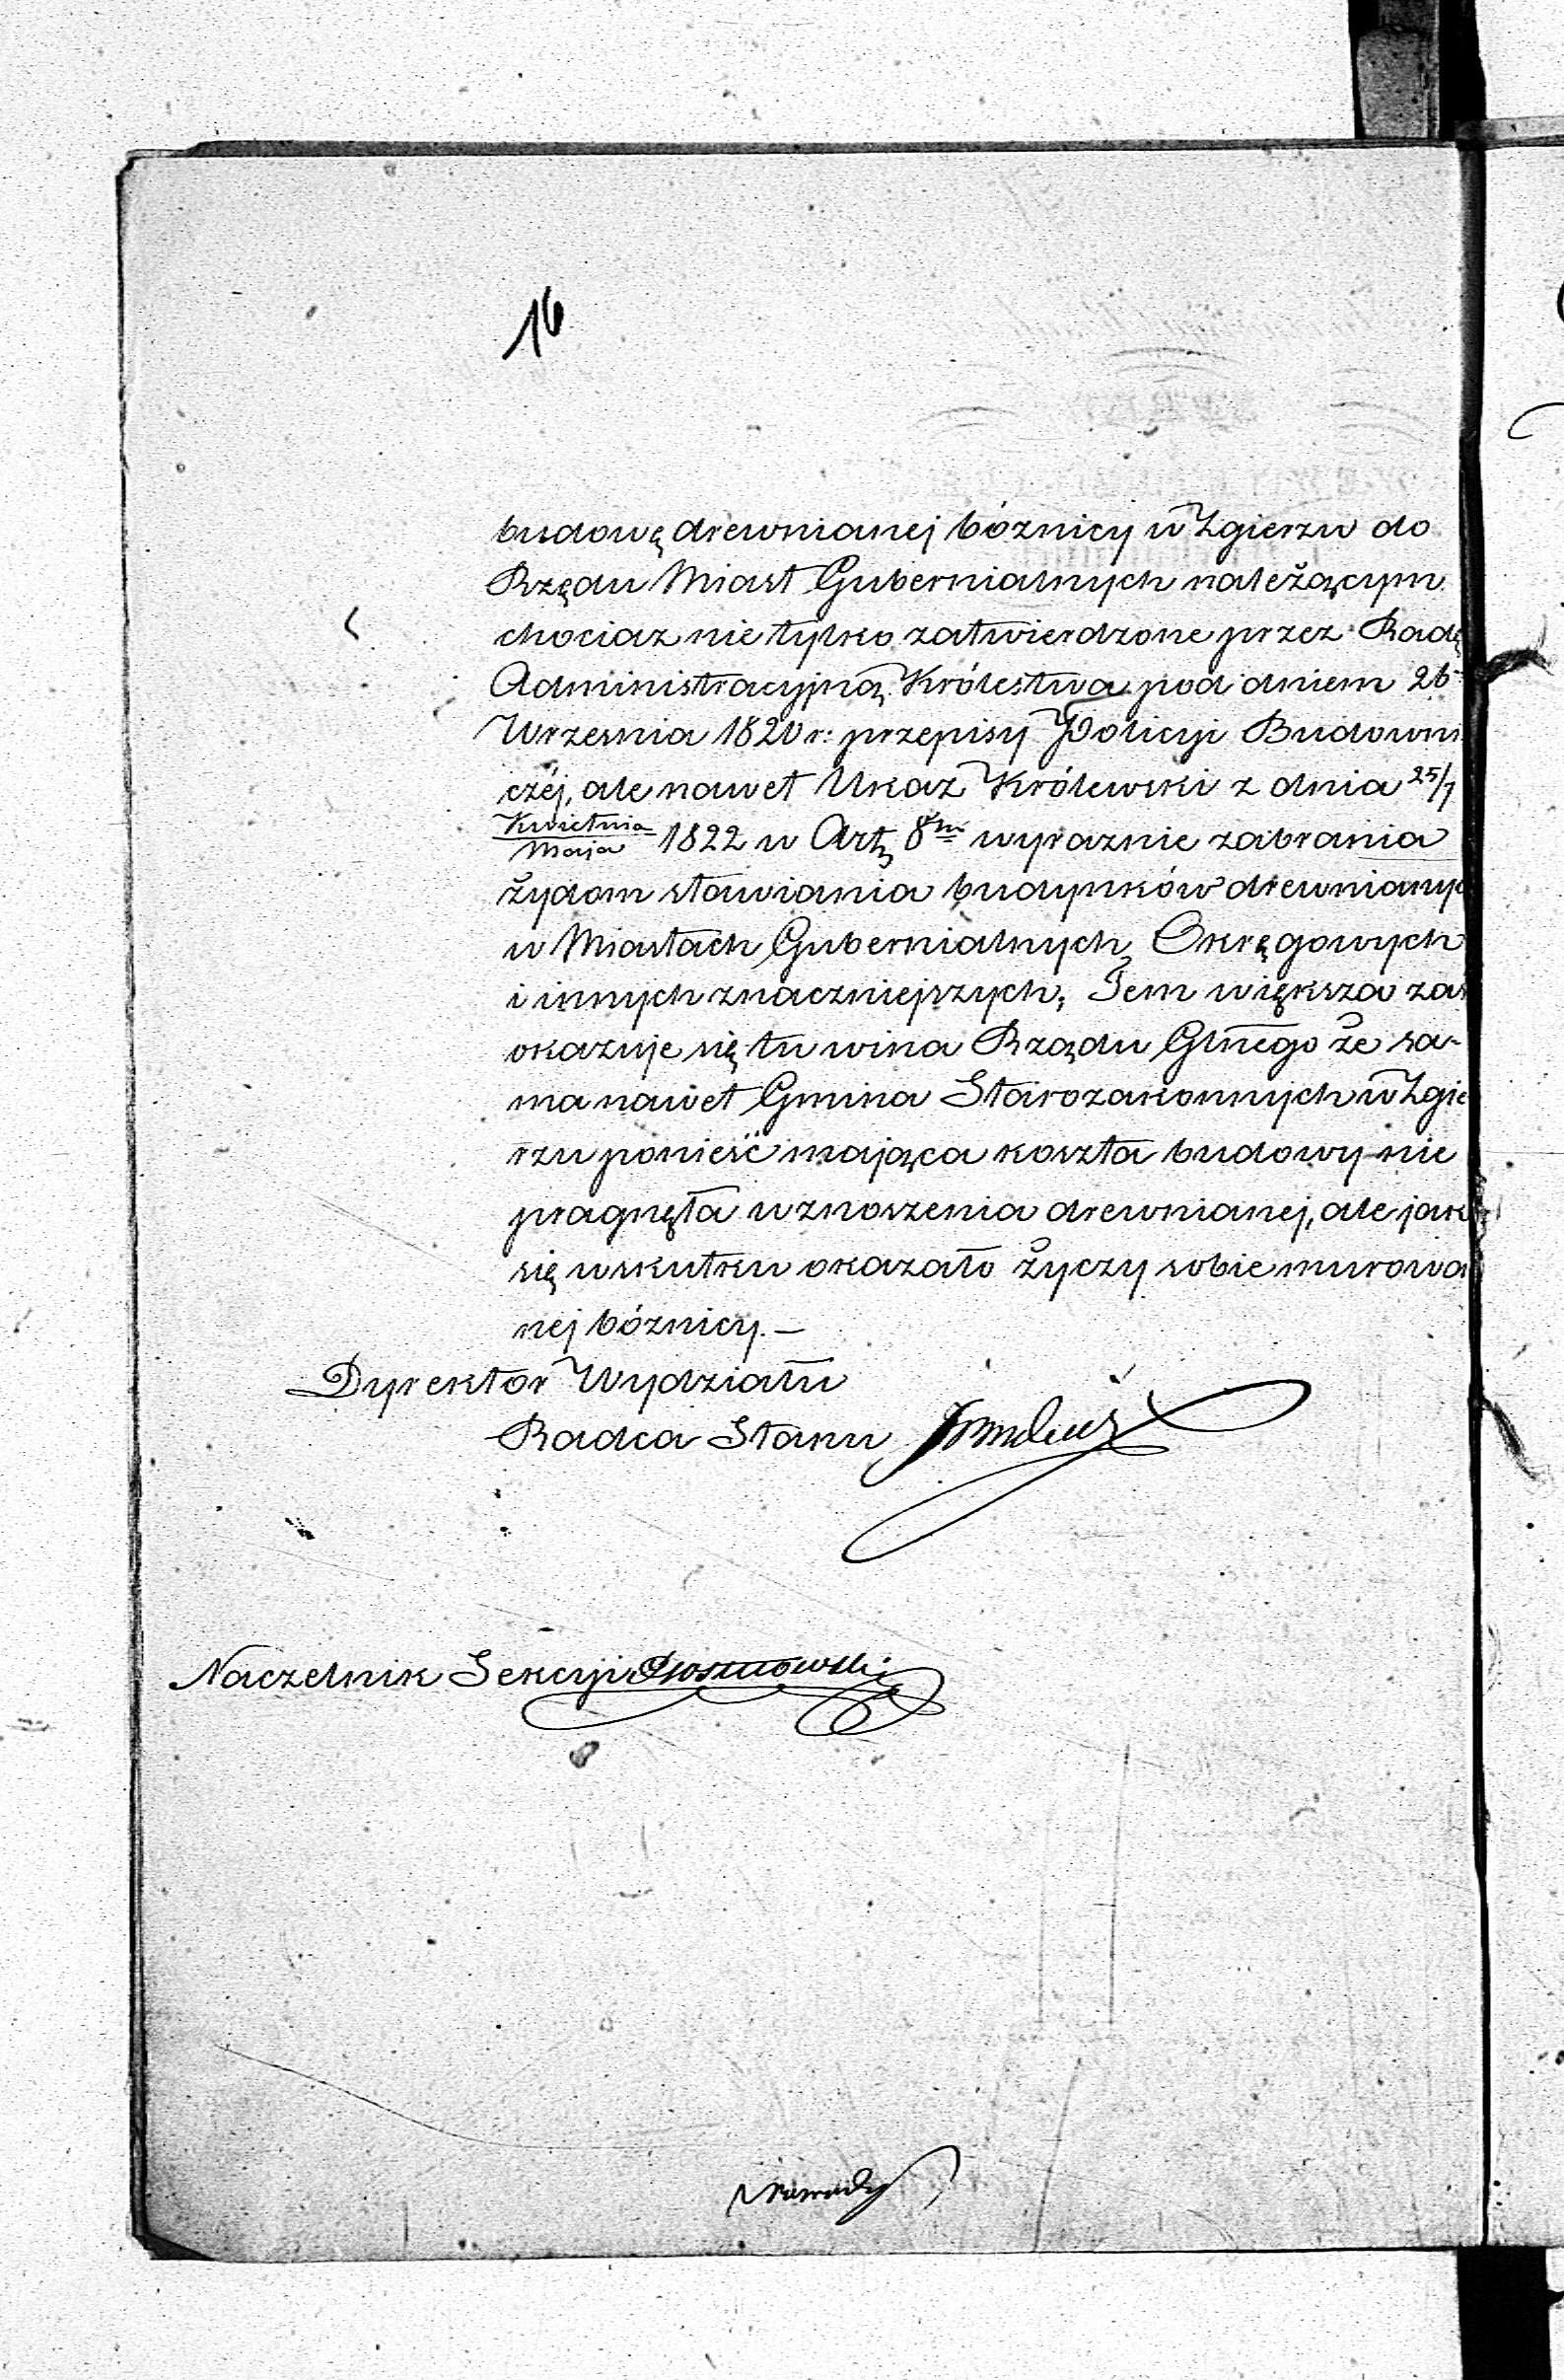 16
budowę drewnianej bóżnicy w Zgierzu do
Rzędu Miast Gubernialnych należącym
chociaz nie tylko zatwierdzone przez Radę
Administracyjną Królestwa pod dniem 26
Września 1820 r: przepisy Policyi Budowni
czéj, ale nawet Ukaz Królewski z dnia 25/7
Kwietnia/Maja 1822 w Artę 8m wyraznie zabrania
żydom stawiania budynków drewnianych
w Miastach Gubernialnych, Okręgowych
i innych znaczniejszych; Tem większa zaś
okazuje się tu wina Rządu Głnego że sa-
ma nawet Gmina Starozakonnych w Zgie
rzu ponieść mająca koszta budowy nie
pragnęła wznoszenia drewnianej, ale jak
się wskutku okazało życzy sobie murowa
nej bóżnicy.—
Dyrektor Wydziału
Radca Stanu
Naczelnik Sekcyi